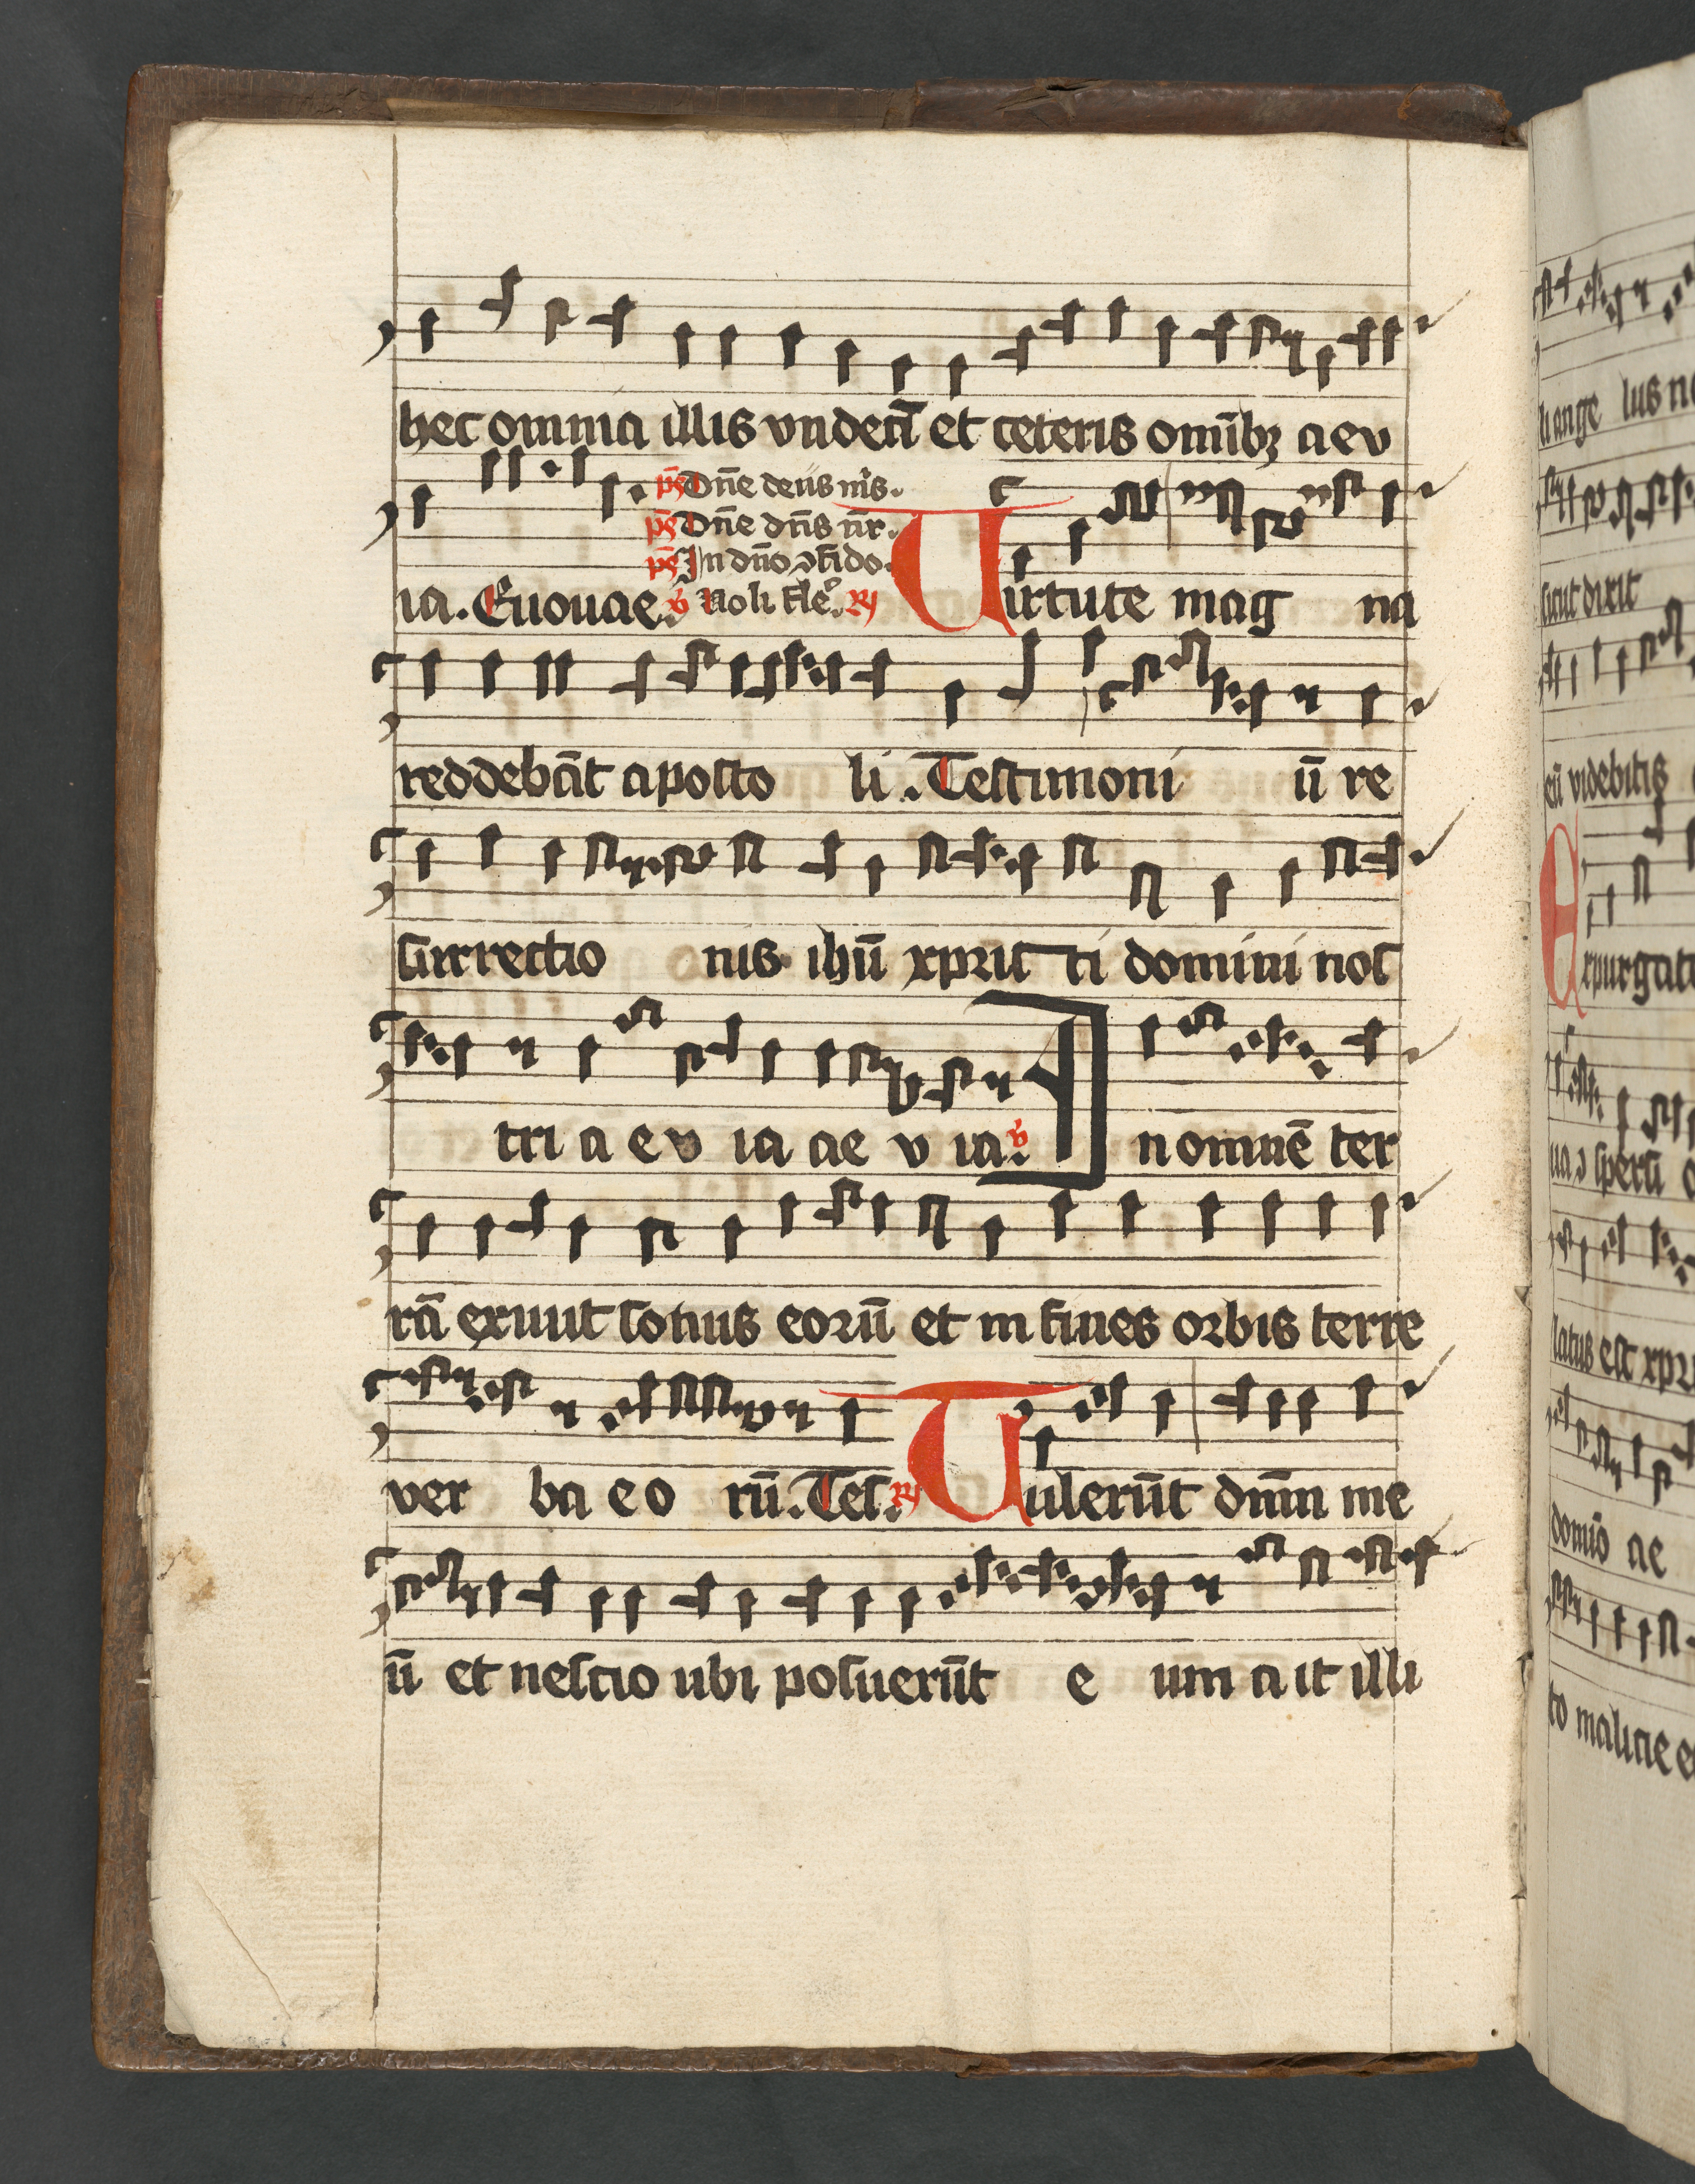 hec omnia illis vndecī et ceteris omībꝫ aev
pͤs Dn̄e deus mȝ.
pͤs Dn̄e dn̄s nr̄.
pͤs In dn̄o ꝯfido.
ia. Euouae. v̄ Noli fle͛. R̷
Uirtute mag na
reddebāt aposto li. Testimoni ū re
surrectio nis ihū xpris ti domini nos
tri a ev ia ae v ia. v̄ In omnē ter
rā exivit sonus eorū et in fines orbis terre
ver ba eo rū. Tes. R̷ Tulerūt dnm̄ me
ū et nescio ubi posuerūt e um a it illi
li ange lus n
sicut dixit
eū videbitis
Expurgate
ua ꝯspersi
latus est xpr
domīo ae
to malicie e